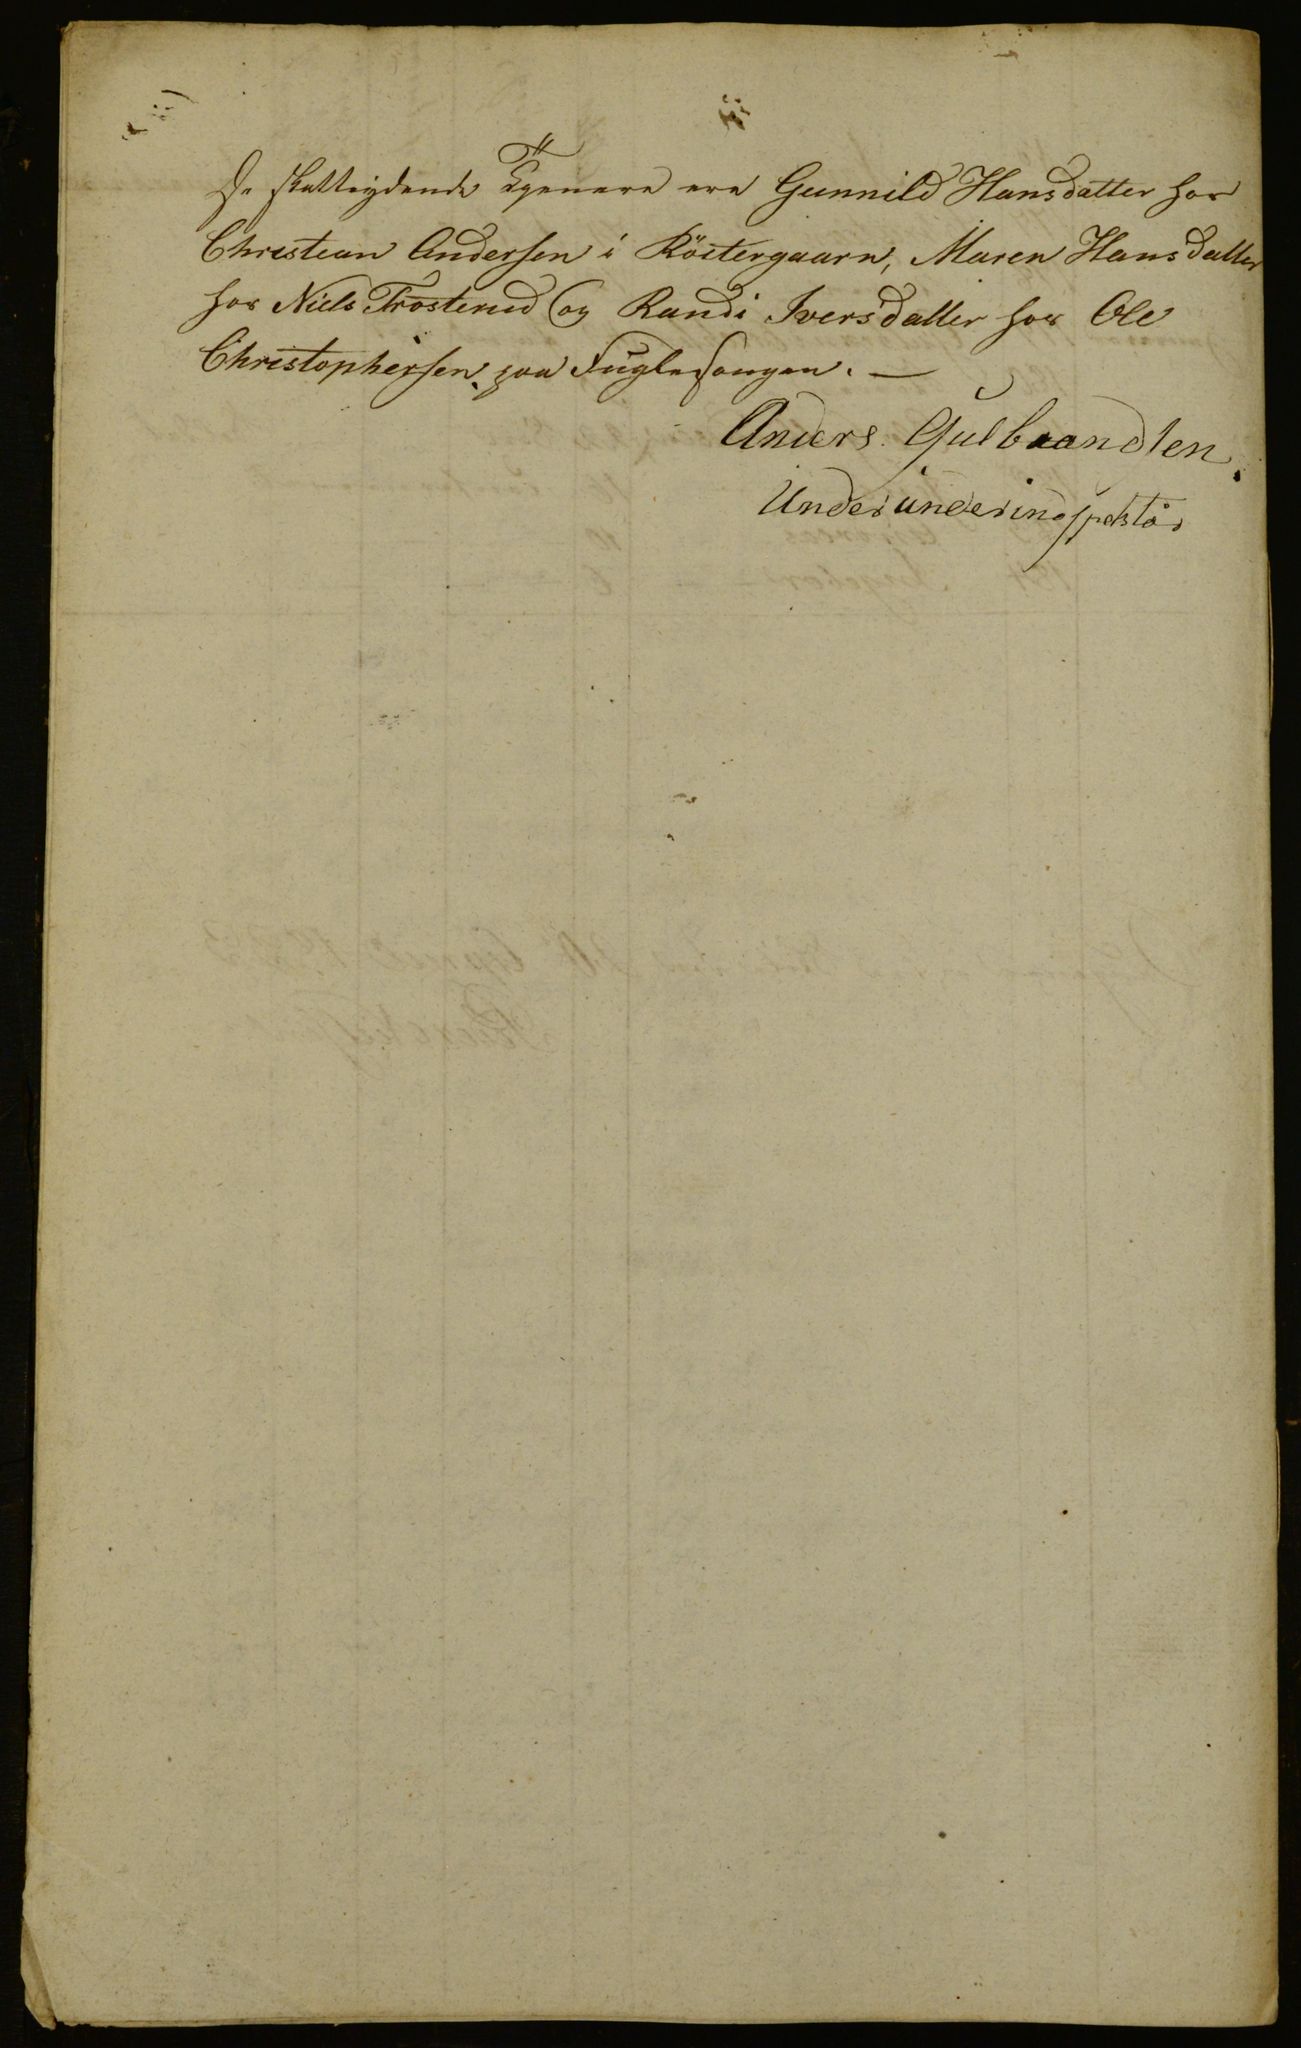 De skatteydende Tjenere ere Gunnild Hansdatter hos
Christian Andersen i Röitergaarn, Maren Hansdatter
hos Niels Trosterud og Randi Iversdatter hos Ole
Christophersen paa Fuglesangen. —
Anders. Gulbrandsen
Under underindspektör